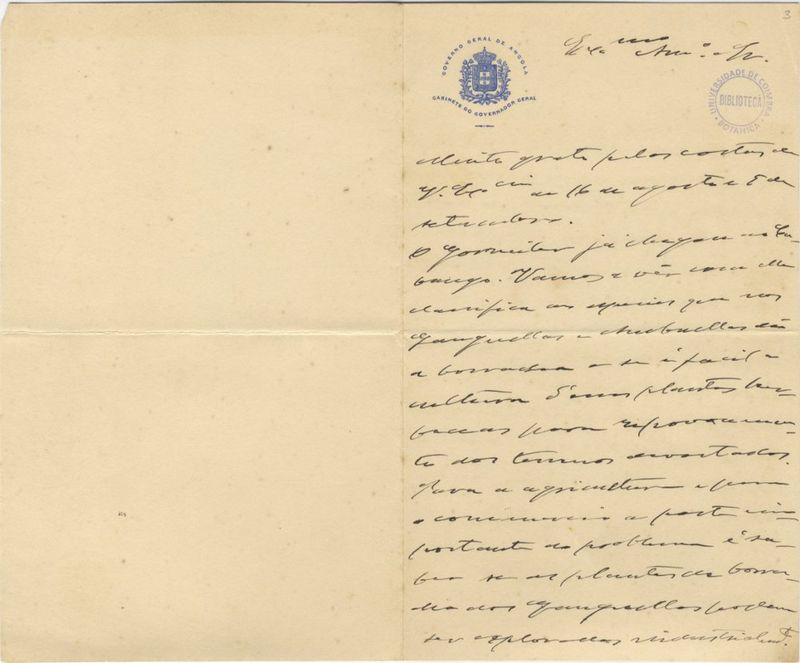 3
GOVERNO GERAL DE ANGOLA
GABINETE DO GOVERNADOR GERAL
Exmo Amo. e Sr.
UNIVERSIDADE DE COIMBRA
BIBLIOTECA
BOTANICA
Muito grato pelas cartas de
V. Excia de 16 de agosto e 5 de
setembro.
O Gossweiler já chegou ao Cu-
bango. Vamos a vêr como elle
classifica as especies que nos
Ganguellas e Ambuellas dão
a borracha e se é facil a
cultura d'essas plantas her-
baceas para repovoamen-
to dos terrenos devastados.
Para a agricultura e para
o commercio a parte im-
portante do problema é sa-
ber se as plantas de borra-
cha dos Ganguellas podem
ser exploradas industrialmte.